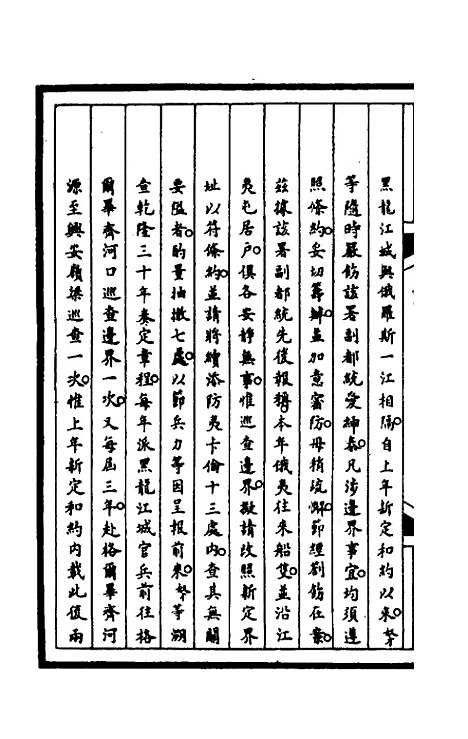 黑龍江城與俄羅斯一江相隔。自上年新定和約以來。奴
等隨時嚴飭該署副都統愛紳泰。凡涉邊界事宜。均須遵
照條約。妥切籌辦。並加意密防。毋稍疏懈。節經劄飭在案。
茲據該署副都統先後報稱。本年俄夷往來船隻。並沿江
夷屯居戶。俱各安靜無事。惟巡查邊界。擬請改照新定界
址以符條約。並請將續添防夷卡倫十三處內。查其無關
要隘者。酌量抽撤七處。以節兵力等因呈報前來。奴等溯
查乾隆三十年奏定章程。每年派黑龍江城官兵前往格
爾畢齊河口巡查邊界一次。又每屆三年。赴格爾畢齊河
源至興安嶺梁巡查一次。惟上年新定和約內載此後兩